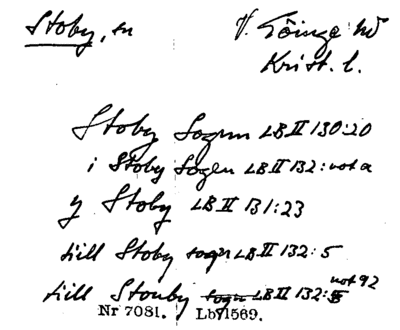 Stoby, sn V. Göinge hd
Krist. l.
Stoby Sognn LB II 130:20
i Stoby Sogen LB II 132: not a
y Stoby LB II 131:23
till Stoby sogn LB II 132: 5
till Stouby sogn LB II 132: not 92
Nr 7081. Lby 1569.